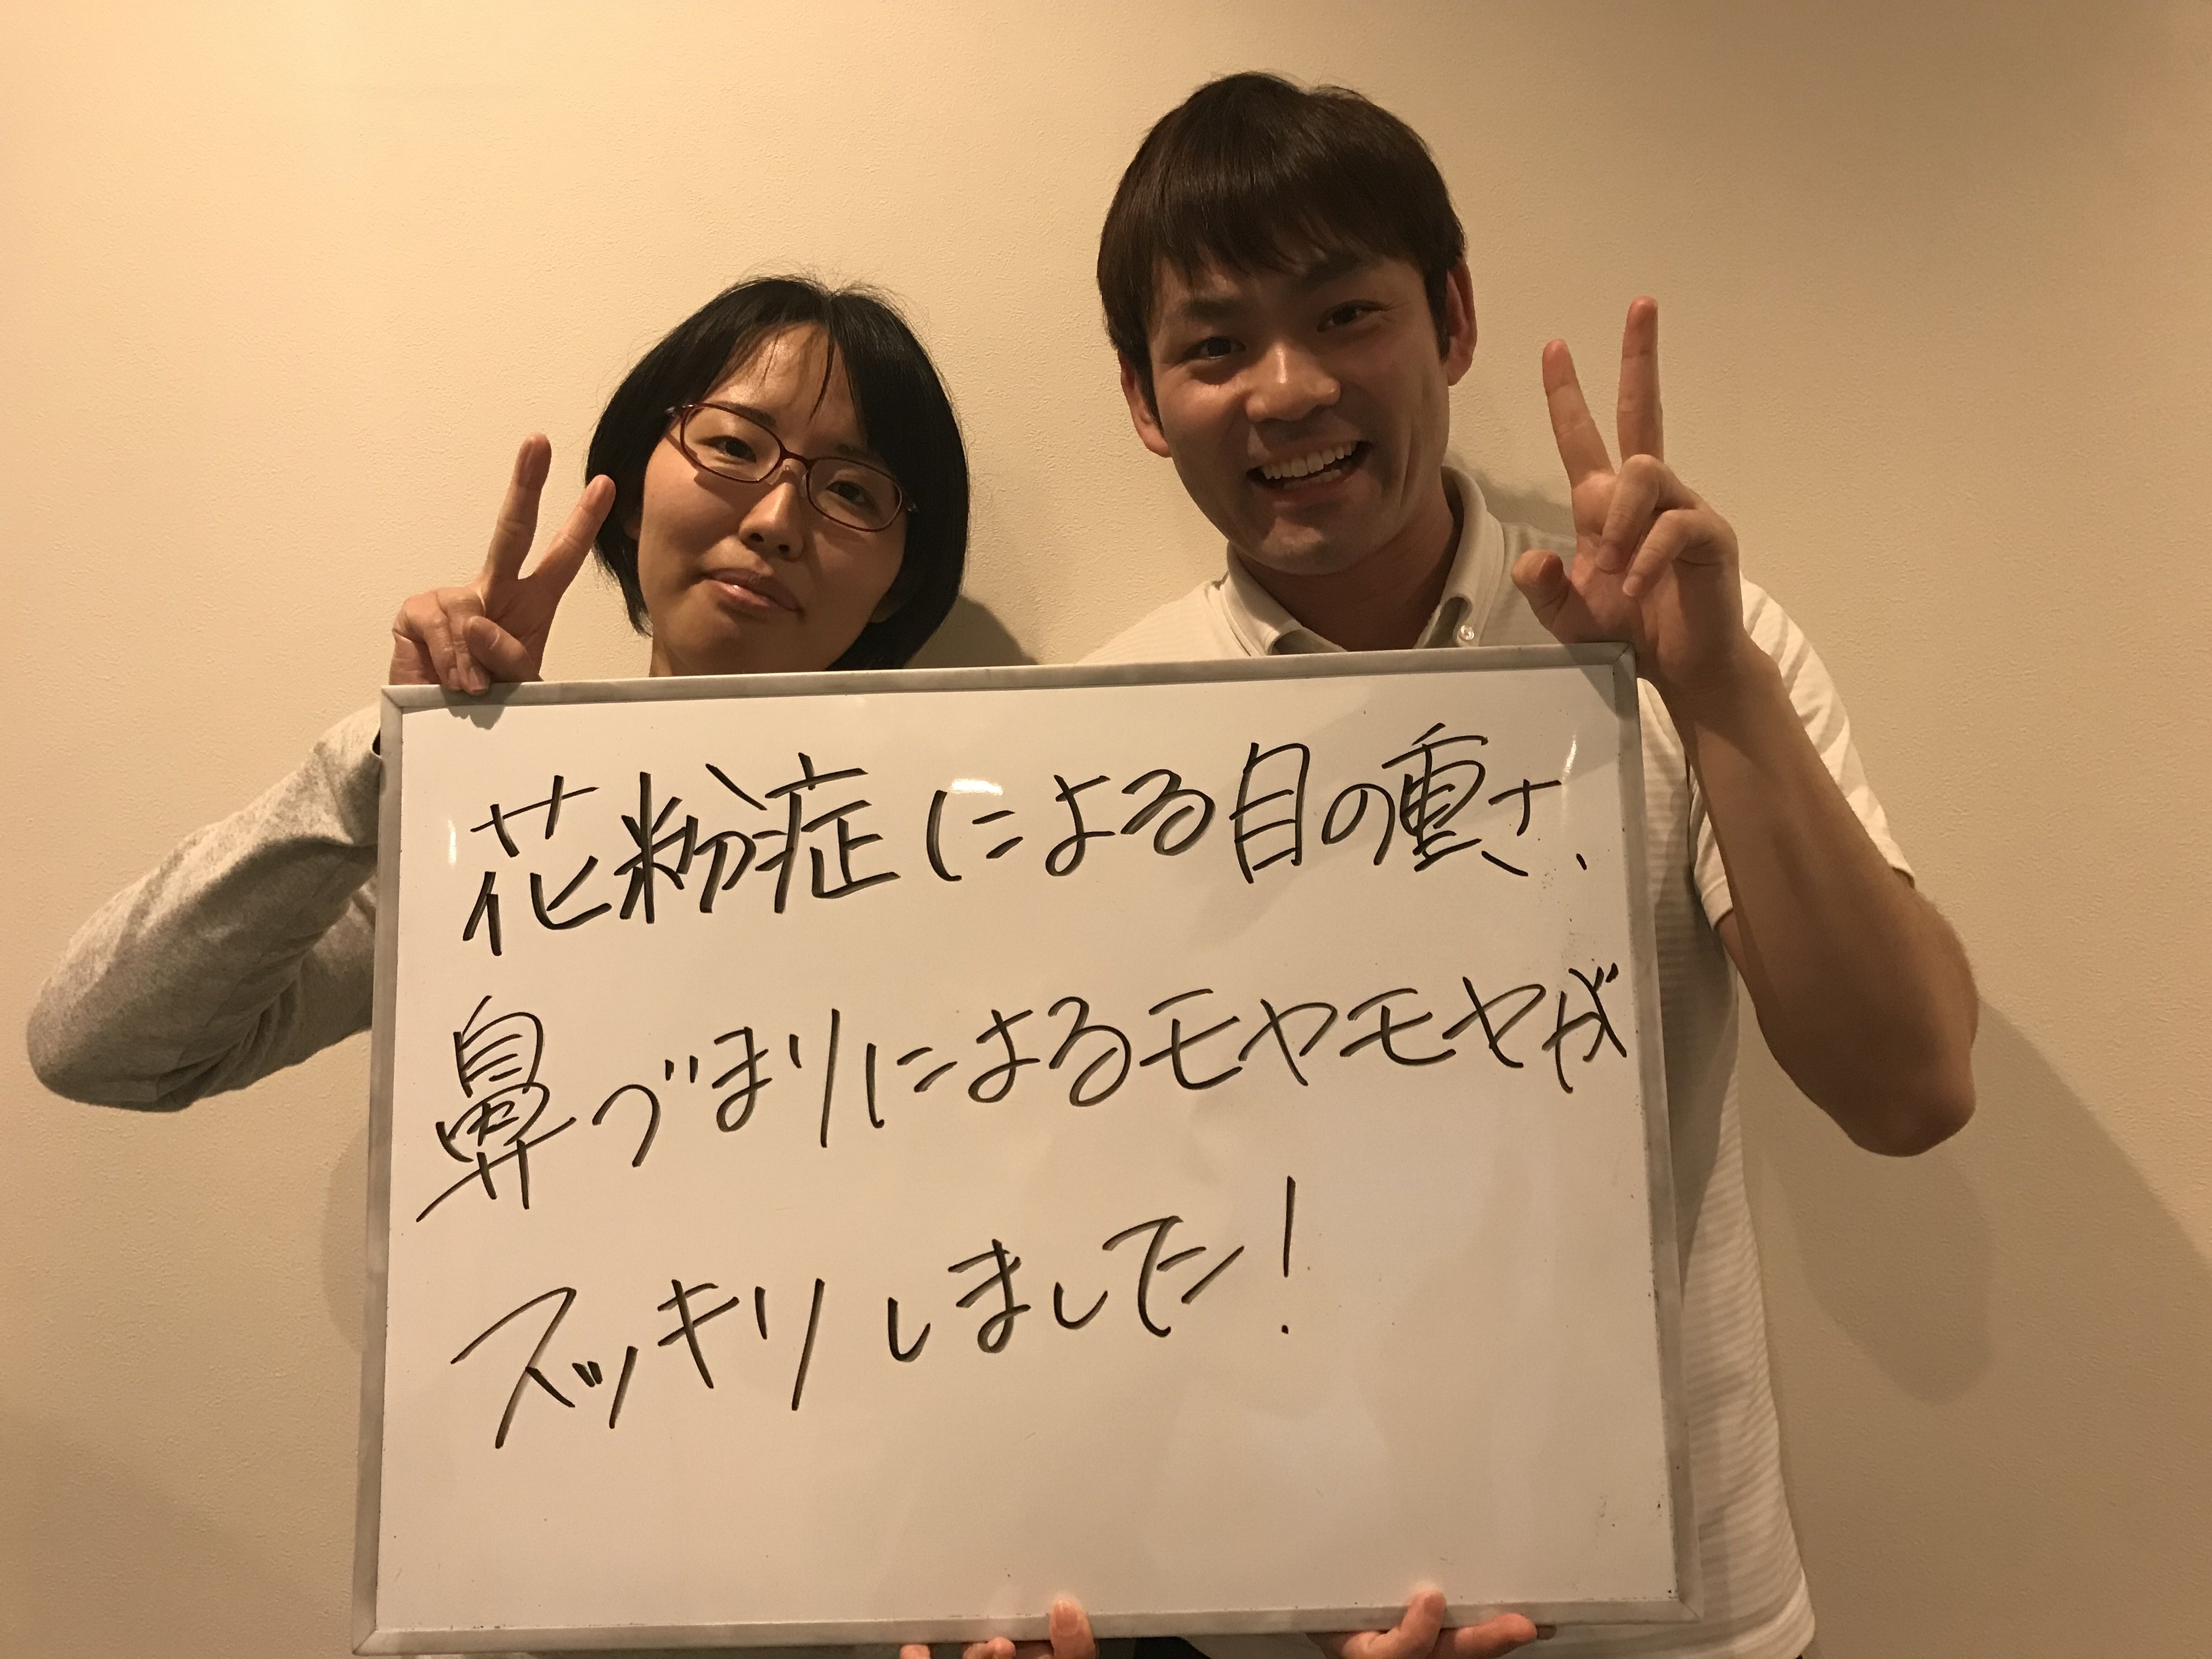 花粉症による目の重さ、
鼻づまりによるモヤモヤが
スッキリしました!